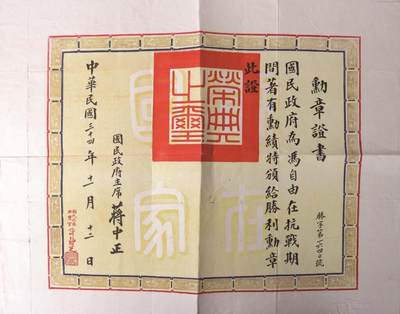 勳章證書
國民政府為馮自由在抗戰期
間著有勳績特頒給勝利勳章
此證
榮典之璽
國民政府主席 蔣中正
中華民國三十四年十一月十二日